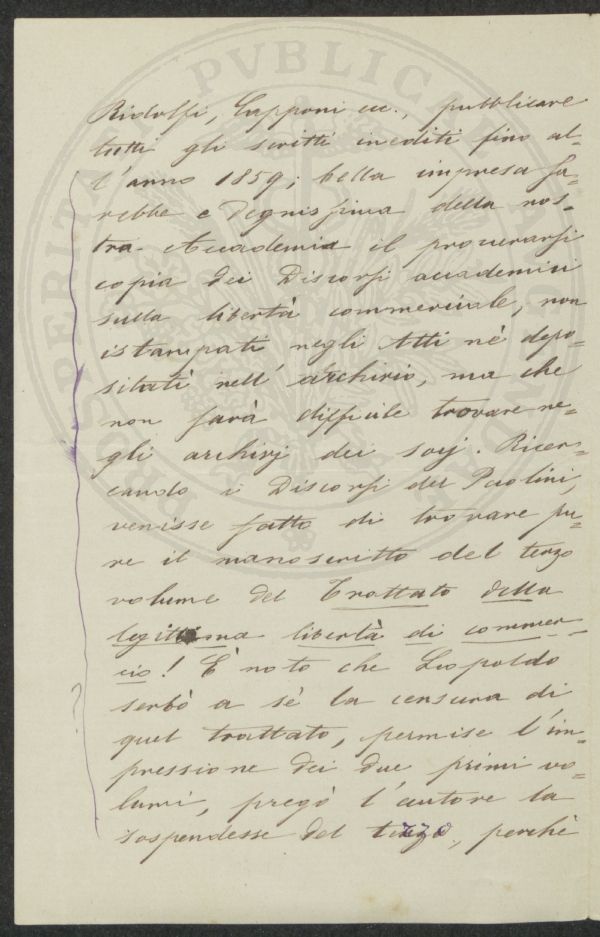 Ridolfi, Capponi ecc., pubblicare
tutti gli scritti inediti fino al-
l'anno 1859; bella impresa sa-
rebbe e degnissima della nos-
tra Accademia il procurarsi
copia dei Discorsi accademici
sulla libertà commerciale, non
istampati negli Atti nè depo-
sitati nell'archivio, ma che
non sarà difficile trovare ne-
gli archivj dei socj. Ricer-
cando i Discorsi del Paolini,
venisse fatto di trovare pu-
re il manoscritto del terzo
volume del Trattato della
legittima libertà di commer-
cio! È noto che Leopoldo
serbò a sè la censura di
quel trattato, permise l'im-
pressione dei due primi vo-
lumi, pregò l'autore la
sospendesse del terzo, perchè
?
PROSPERITATI PVBLICAE AVG